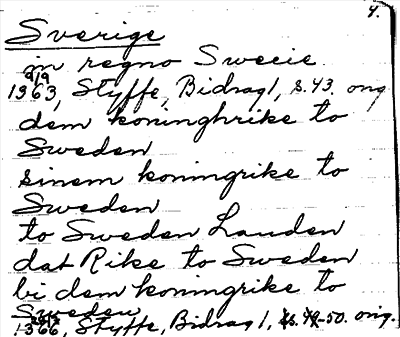 4.
Sverige
in regno Sweeie
2/9
1363, Styffe, Bidrag 1, s. 43. orig
dem koninghrike to
Sweden
sinem koningrike to
Sweden
to Sweden Landen
dat Rike to Sweden
bi dem koningrike to
Sweden
1366, Styffe, Bidrag 1, s. 49-50. orig.